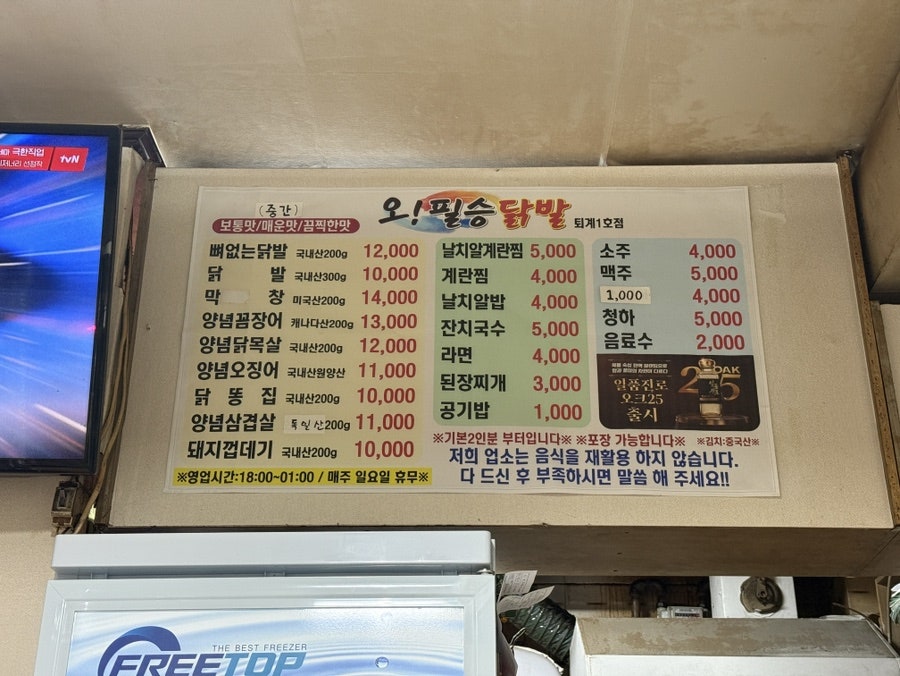 극한직업
tvN
(중간)
보통맛/매운맛/끔찍한맛
오!필승닭발 퇴계1호점
뼈없는닭발 국내산200g 12,000
닭 발 국내산300g 10,000
막 창 미국산200g 14,000
양념꼼장어 캐나다산200g 13,000
양념닭목살 국내산200g 12,000
양념오징어 국내산원양산 11,000
닭 똥 집 국내산200g 10,000
양념삼겹살 독일산200g 11,000
돼지껍데기 국내산200g 10,000
※영업시간:18:00~01:00 / 매주 일요일 휴무※
날치알계란찜 5,000
계란찜 4,000
날치알밥 4,000
잔치국수 5,000
라면 4,000
된장찌개 3,000
공기밥 1,000
소주 4,000
맥주 5,000
1,000 4,000
청하 5,000
음료수 2,000
25 OAK
일품진로
오크25
출시
※기본2인분 부터입니다※ ※포장 가능합니다※ ※김치:중국산※
저희 업소는 음식을 재활용 하지 않습니다.
다 드신 후 부족하시면 말씀 해 주세요!!
THE BEST FREEZER
FREETOP